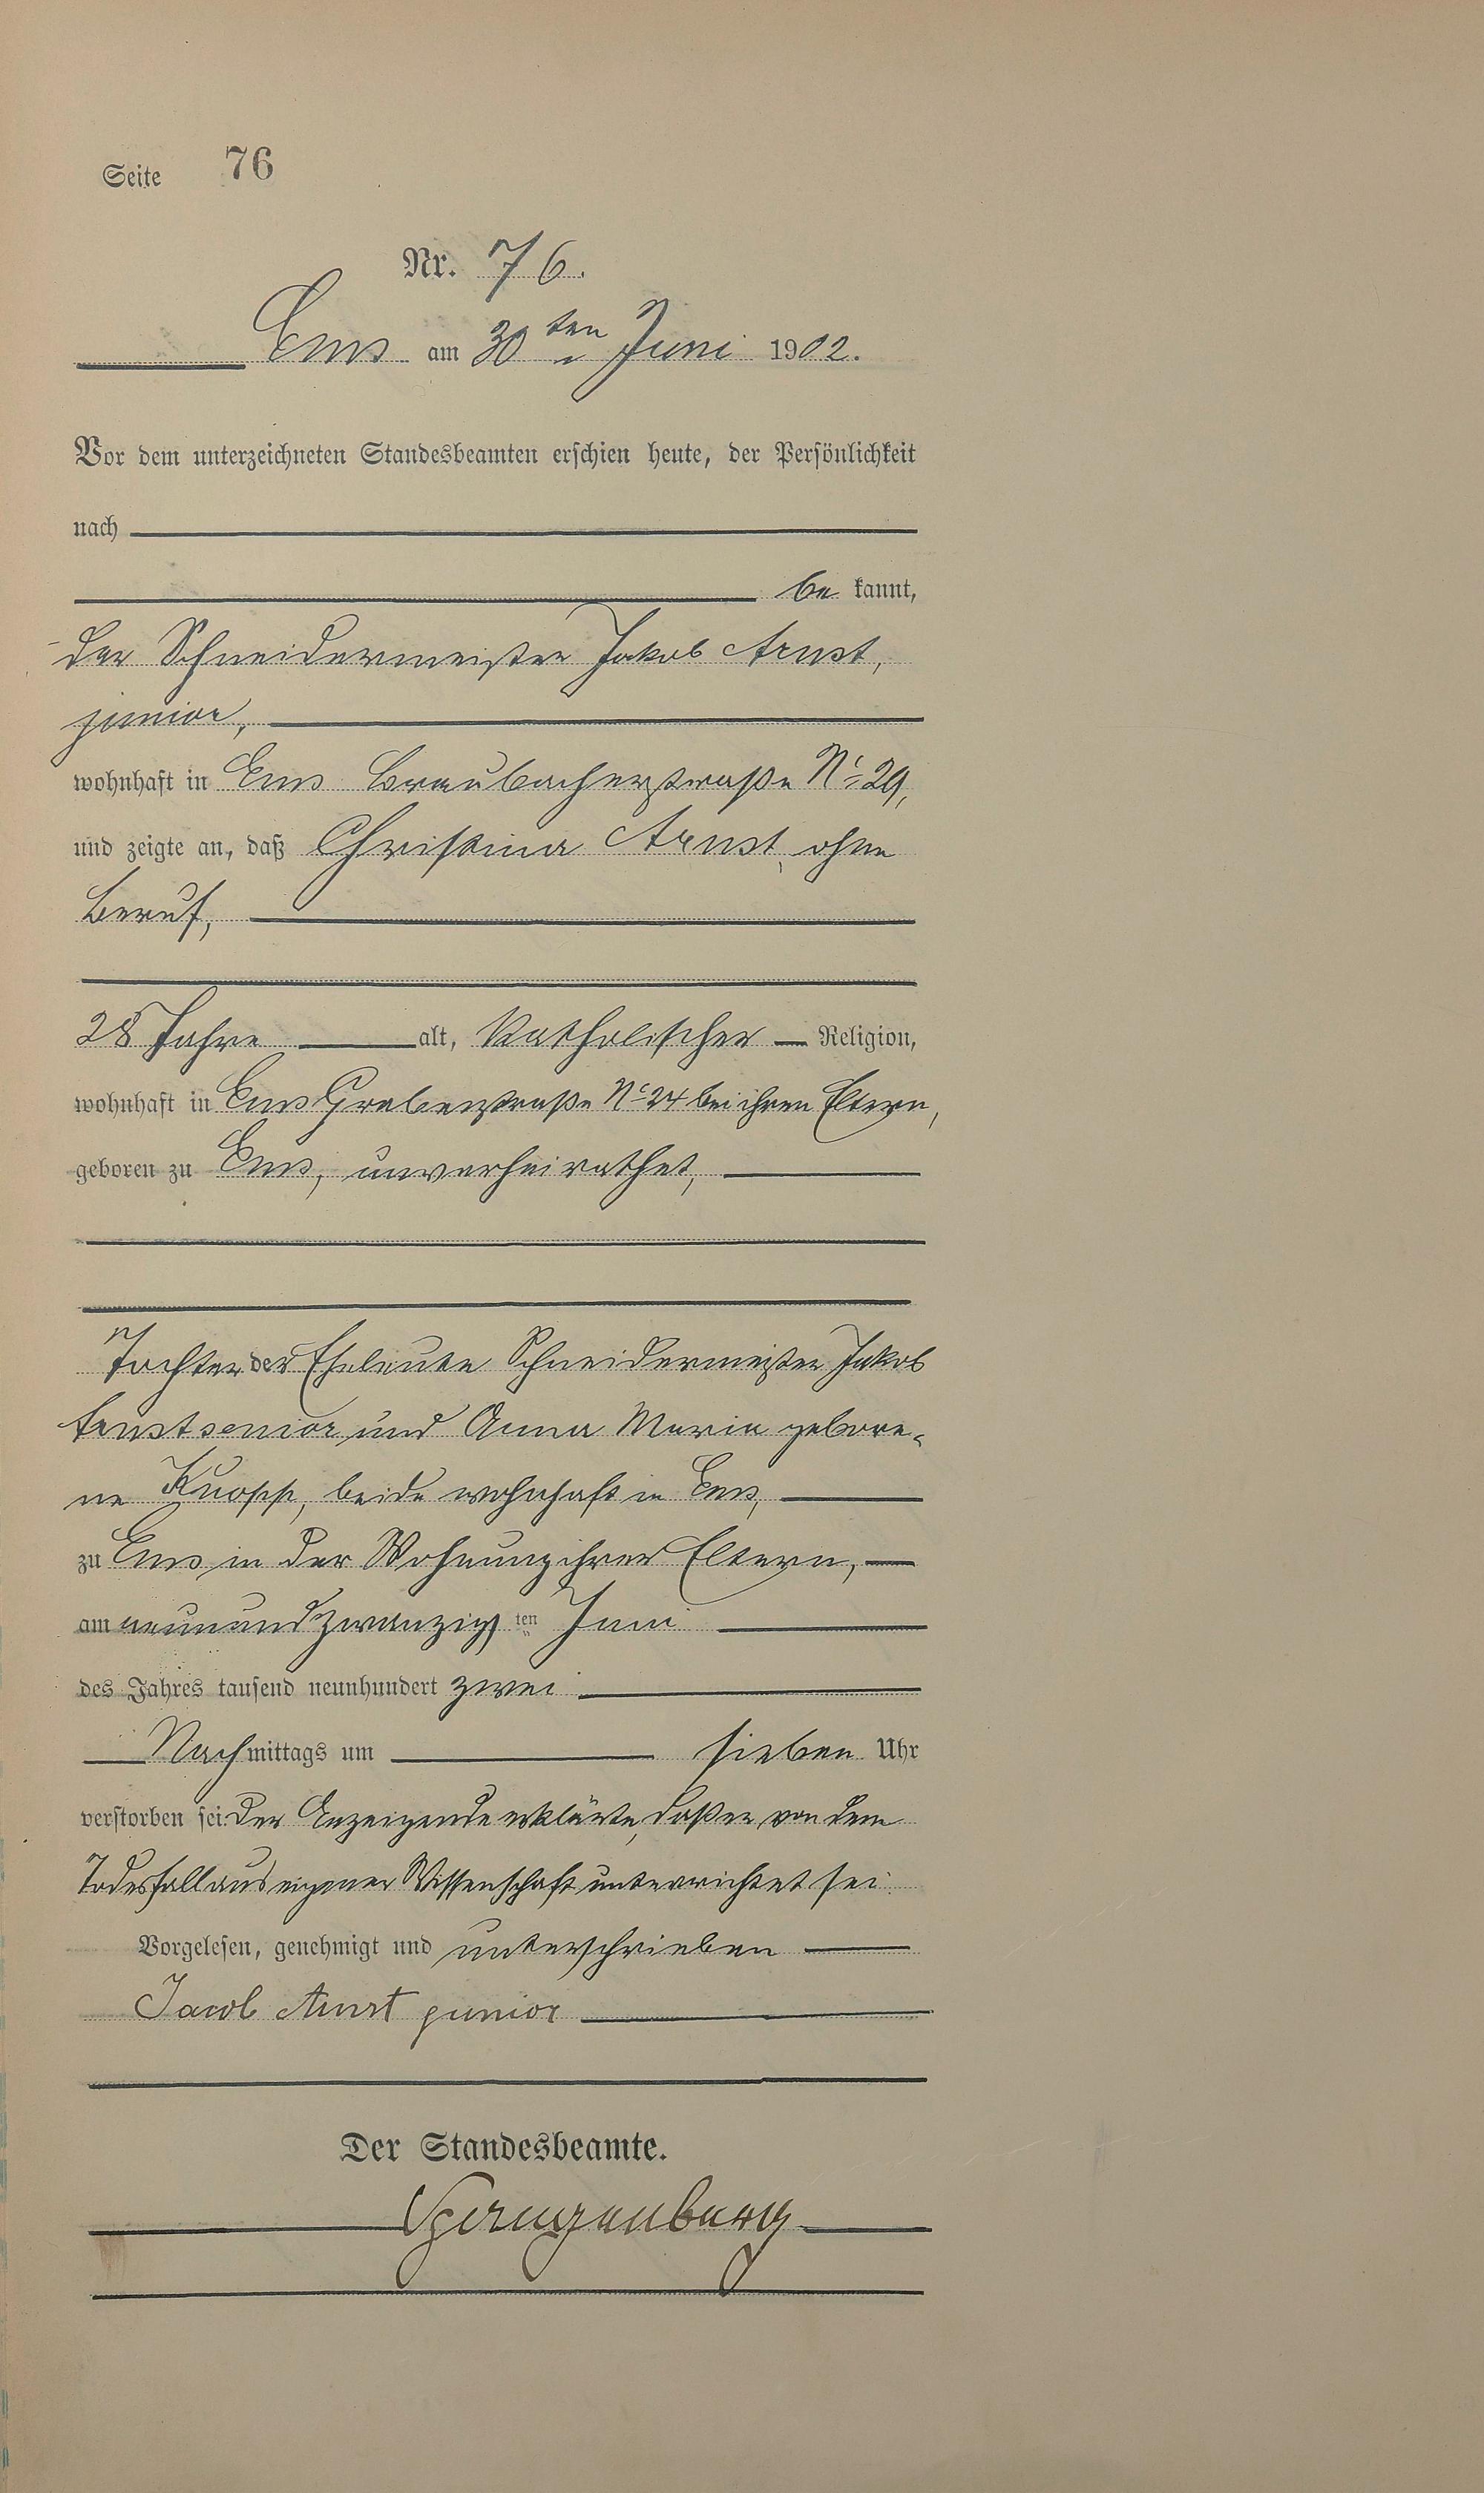 Seite 76
Nr. 76.
Ems am 30ten Juni 1902.
Vor dem unterzeichneten Standesbeamten erschien heute, der Persönlichkeit
nach
be kannt,
der Schneidermeister Jakob Arnst,
junior,
wohnhaft in Ems Braubacherstraße No 29,
und zeigte an, daß Christina Arnst, ohne
Beruf,
28 Jahre alt, katholischer Religion,
wohnhaft in Ems Grabenstraße No 24 bei ihren Eltern,
geboren zu Ems, unverheirathet,
Tochter der Eheleute Schneidermeister Jakob
Arnst senior und Anna Maria gebore-
ne Knopp, beide wohnhaft in Ems,
zu Ems in der Wohnung ihrer Eltern,
am neunundzwanzig ten Juni
des Jahres tausend neunhundert zwei
Nachmittags um sieben Uhr
verstorben sei. Der Anzeigende erklärte, daß er von dem
Todesfall aus eigener Wissenschaft unterrichtet sei.
Vorgelesen, genehmigt und unterschrieben
Jacob Arnst junior
Der Standesbeamte.